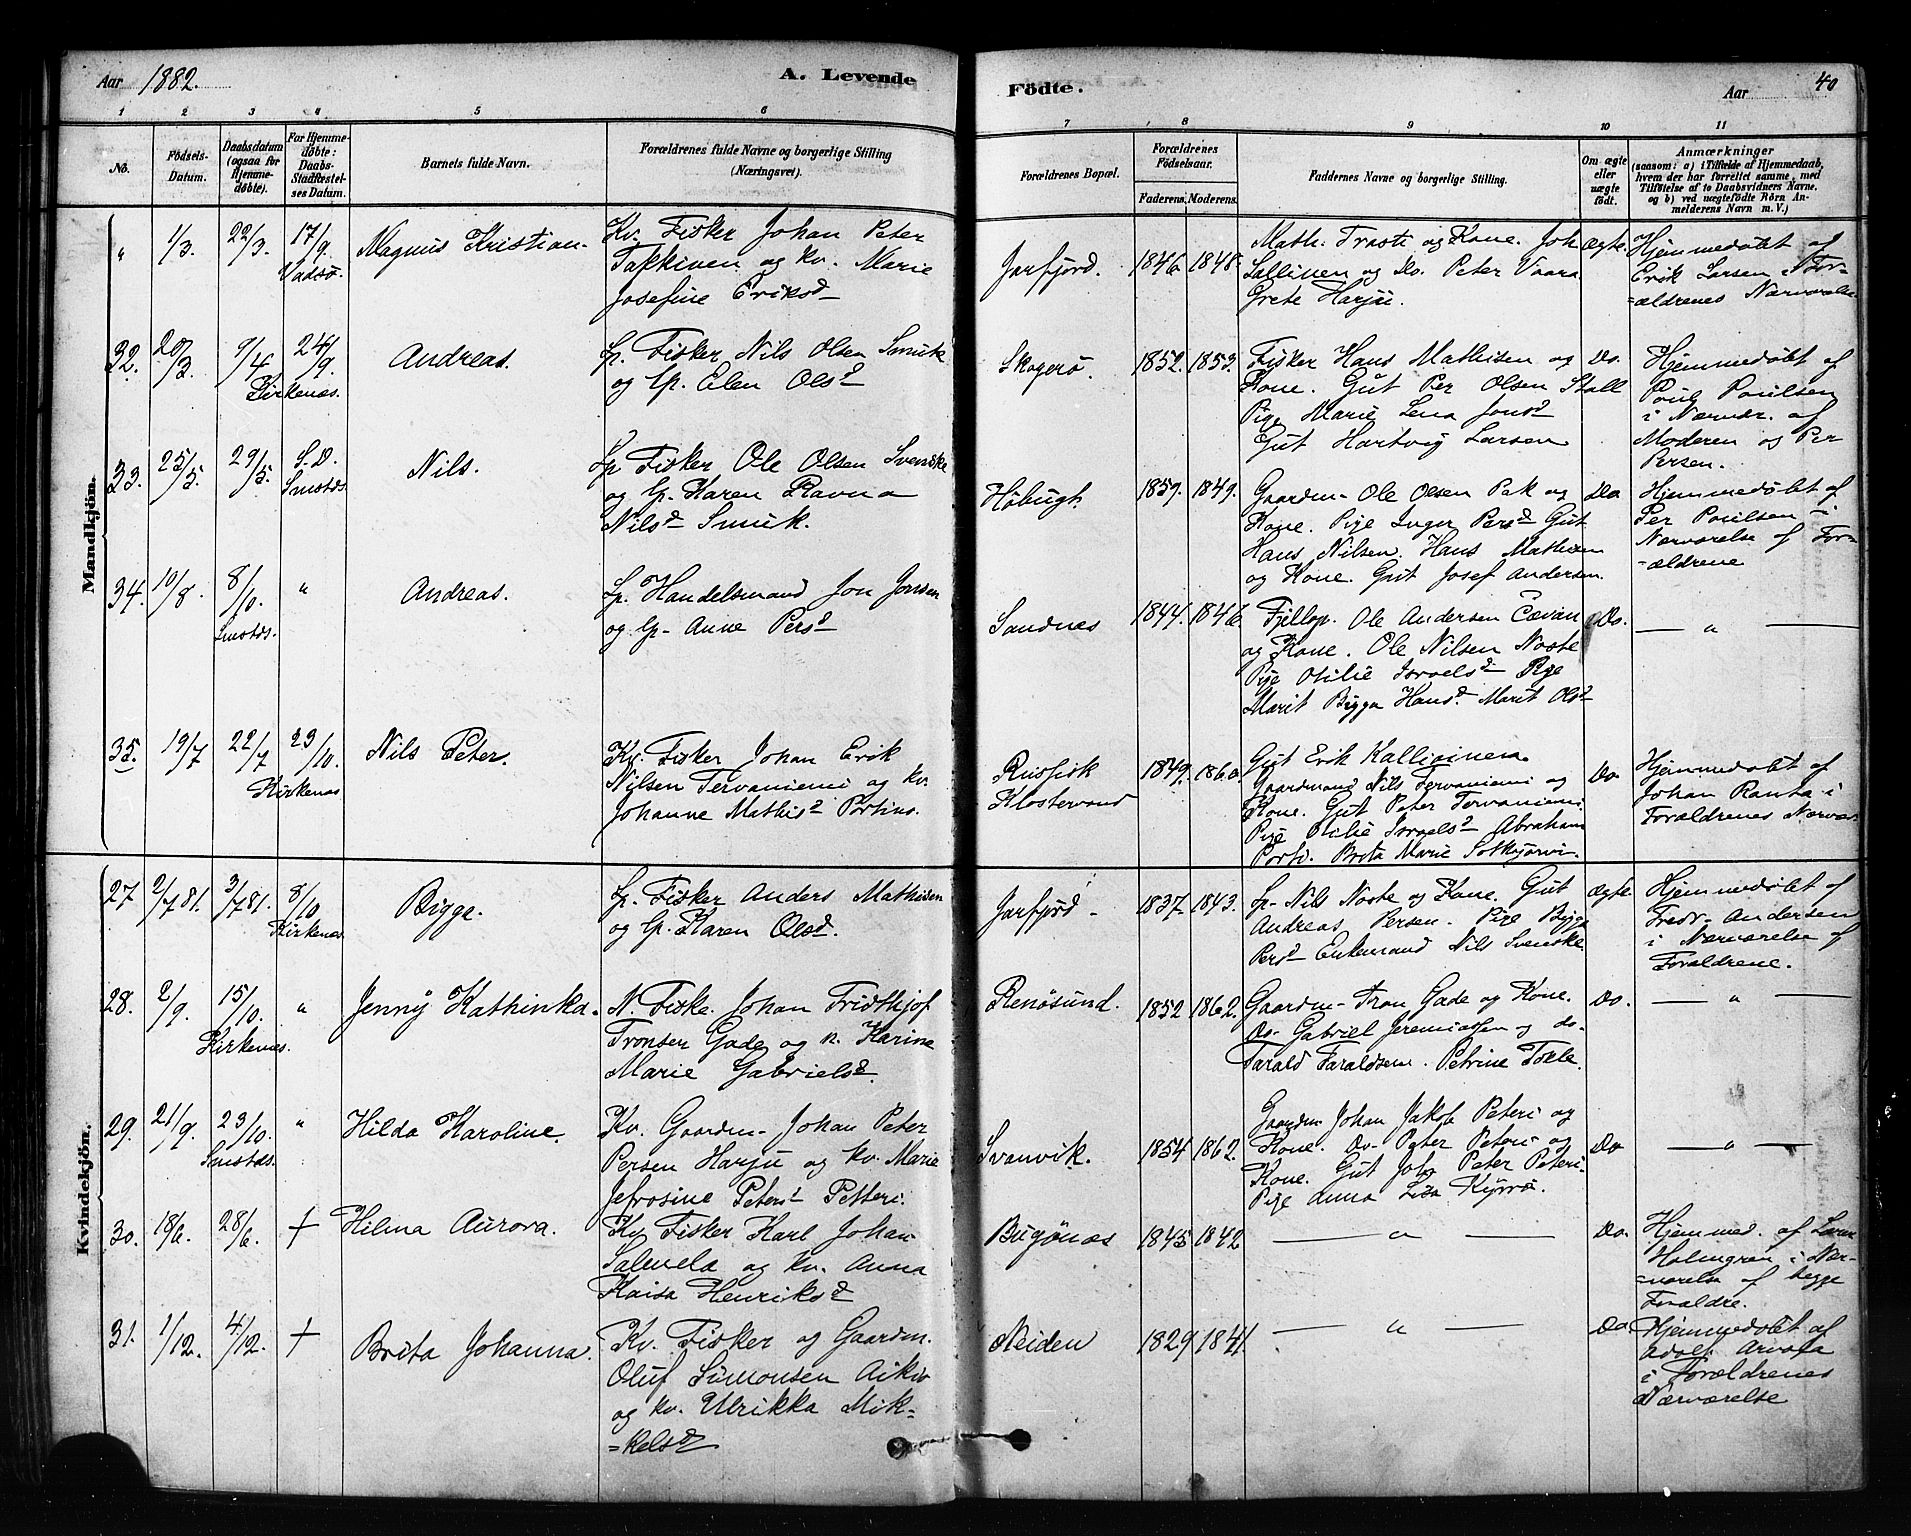 Aar 1882.
A. Levende
Födte.
Aar
40
1 2 3 4 5 6 7 8 9 10 11
No.
Födsels-
Datum.
Daabsdatum
(ogsaa for
Hjemme-
döbte).
For Hjemme-
döbte:
Daabs-
Stadfæstel-
ses Datum.
Barnets fulde Navn.
Forældrenes fulde Navne og borgerlige Stilling
(Næringsvei).
Forældrenes Bopæl.
Forældrenes
Födselsaar.
Faderens.
Moderens.
Faddernes Navne og borgerlige Stilling.
Om ægte
eller
uægte
födt.
Anmærkninger
(saasom: a) i Tilfælde af Hjemmedaab,
hvem der har forrettet samme, med
Tilföielse af to Daabsvidners Navne,
og b) ved uægtefödte Börn An-
melderens Navn m. V.)
Mandkjön.
" 1/3. 22/3. 17/9 Vadsö. Magnus Kristian.
Kv. Fisker Johan Peter
Takkinen og kv. Marie
Josefine Eriksd
Jarfjord. 1846. 1848.
Math. Trasti og Kone. Joh
Sallinen og Do. Peter Vaara
Grete Harju.
Ægte.
Hjemmedöbt af
Erik Larsen i For-
=ældrenes Nærværelse
32. 20/3 9/4 24/9 Kirkenæs. Andreas.
Lp. Fisker Nils Olsen Smuk
og lp. Elen Olsd
Skogerö. 1852. 1853.
Fisker Hans Mathisen og
Kone. Gut Per Olsen Stall
Pige Marie Lena Jonsd
Gut Hartvig Larsen
Do.
Hjemmedöbt af
Poul Poulsen
i Nærvær. af
Moderen og Per
Persen.
33. 25/5. 29/5. S.D. Smstds. Nils.
Lp Fisker Ole Olsen Svenske
og lp. Karen Ravna
Nilsd Smuk.
Höbugt. 1859. 1849.
Gaardm- Ole Olsen Pak og
Kone. Pige Inger Persd Gut
Hans Nilsen. Hans Mathisen
og Kone. Gut Josef Andersen.
Do
Hjemmedöbt af
Per Poulsen i
Nærværelse af For-
=ældrene
34. 10/8 8/10. Smstds. " Andreas.
Lp. Handelsmand Jon Jonsen
og lp- Anne Persd
Sandnæs 1844. 1846.
Fjellop. Ole Andersen Cævan
og Kone. Ole Nilsen Noste
Pige Otilie Israelsd Pige
Marit Bigga Hansd. Marit Olsd
Do.
— " —
35. 19/7 22/7 23/10. Kirkenæs Nils Peter.
Kv. Fisker Johan Erik
Nilsen Tervaniemi og kv.
Johanne Mathisd Portins.
Russisk
Klostervand 1849. 1860
Gut Erik Kallioinen
Gaardmand Nils Tervaniemi og
Kone. Gut Peter Tervaniemi.
Pige Otilie Israelsd Abraham
Porti. Brita Marie Sotkajarvi.
Do
Hjemmedöbt af
Johan Ranta i
Forældrenes Nærvær
Kvindekjön.
27 2/7 81. 3/7 81. 8/10 Kirkenæs. Bigge.
Lp. Fisker Anders Mathisen
og lp. Karen Olsd.
Jarfjord - 1837. 1843.
Lp- Nils Noste og Kone. Gut
Andreas Persen. Pige Bigga
Persd Enkemand Nils Svenske
Ægte
Hjemmedöbt af
Fredr- Andersen
i Nærværelse af
Forældrene.
28. 2/9. 15/10. Kirkenæs. " Jenny Kathinka.
N. Fiske. Johan Fridthjof
Tronsen Gade og n. Karine
Marie Gabrielsd.
Renösund. 1852 1862.
Gaardm- Tron Gade og Kone.
Do- Gabriel Jeremiassen og do.
Tarald Taraldsen. Petrine Tolle.
Do.
— " —
29. 21/9. 23/10. Smstds. " Hilda Karoline.
Kv. Gaardm- Johan Peter
Persen Harju og kv. Marie
Jefrosine Petersd Petteri.
Svanvik. 1854 1862.
Gaardm Johan Jakob Peteri og
Kone. Do- Peter Peteri og
Kone. Gut Joh Peter Peteri.
Pige Anna Lisa Kyrrö.
Do
— " —
30. 18/6. 28/6. + Hilma Aurora.
Kv Fisker Karl Johan
Salmela og kv. Anna
Kaisa Henriksd
Bugönæs 1845 1842
— " —
Do.
Hjemmed. af
Holmgren i Nær-
=værelse af begge
Forældre.
31. 1/12. 4/12. + Brita Johanna.
Kv. Fisker og Gaardm.
Oluf Simonsen Aikio
og kv. Ulrikka Mik-
=kelsd
Neiden 1829 1841.
— " —
Do
Hjemmedöbt af
Adolf Arvola
i Forældrenes
Nærværelse